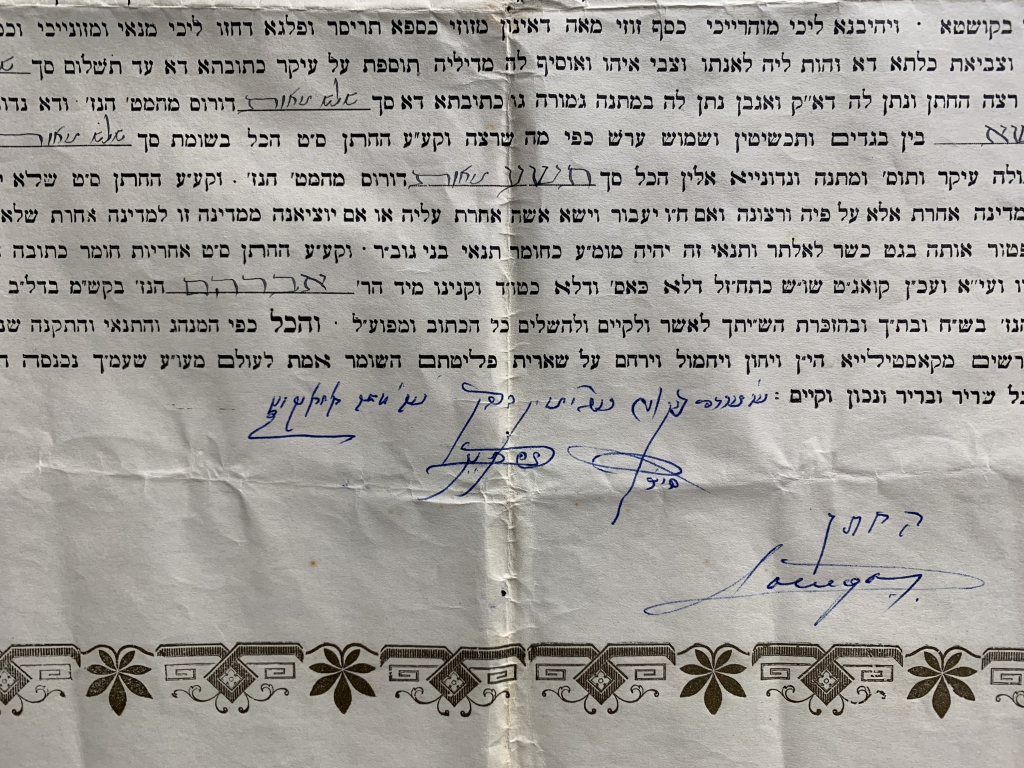 בקושטא · ויהיבנא ליכי מוהרייכי כסף זוזי מאה דאינון מזוזי כספא תריסר ופלגא דחזו ליכי מנאי ומזונייכי
וצביאת כלתא דא והות ליה לאנתו וצבי איהו ואוסיף לה מדיליה תוספת על עיקר כתובתא דא עד תשלום סך
רצה החתן ונתן לה דא״ק ואגבן נתן לה במתנה גמורה גו כתיבתא דא סך שלש מאות דורום מהמט׳ הנז׳ · ודא
בין בגדים ותכשיטין ושמוש ערש כפי מה שרצה וקע״ע החתן ס״ט הכל בשומת סך שלש מאות
עיקר ותוס׳ ומתנה ונדונייא אלין הכל סך תשע מאות דורום מהמט׳ הנז׳ · וקע״ע החתן ס״ט שלא
מדינה אחרת אלא על פיה ורצונה ואם ח״ו יעבור וישא אשה אחרת עליה או אם יוציאנה ממדינה זו למדינה אחרת שלא
אותה בגט כשר לאלתר ותנאי זה יהיה מומ״ע כחומר תנאי בני גוב״ר · וקע״ע החתן ס״ט אחריות חומר כתובה
ועי״א ועכ״ן קואג״ט שו״ש כתח״זל דלא כאס׳ ודלא כטו״ד וקנינו מיד הר׳ אברהם הנז׳ בקש״מ בדל״ב
הנז׳ בש״ח ובת״ך ובהזכרת הש״יתך לאשר ולקיים ולהשלים כל הכתוב ומפוע״ל · והכל כפי המנהג והתנאי והתקנה
מקאסטילייא הי״ן ויחון ויחמול וירחם על שארית פליטתם השומר אמת לעולם מעו״ע שעמך נכנסה
שריר ובריר ונכון וקיים :
החתן